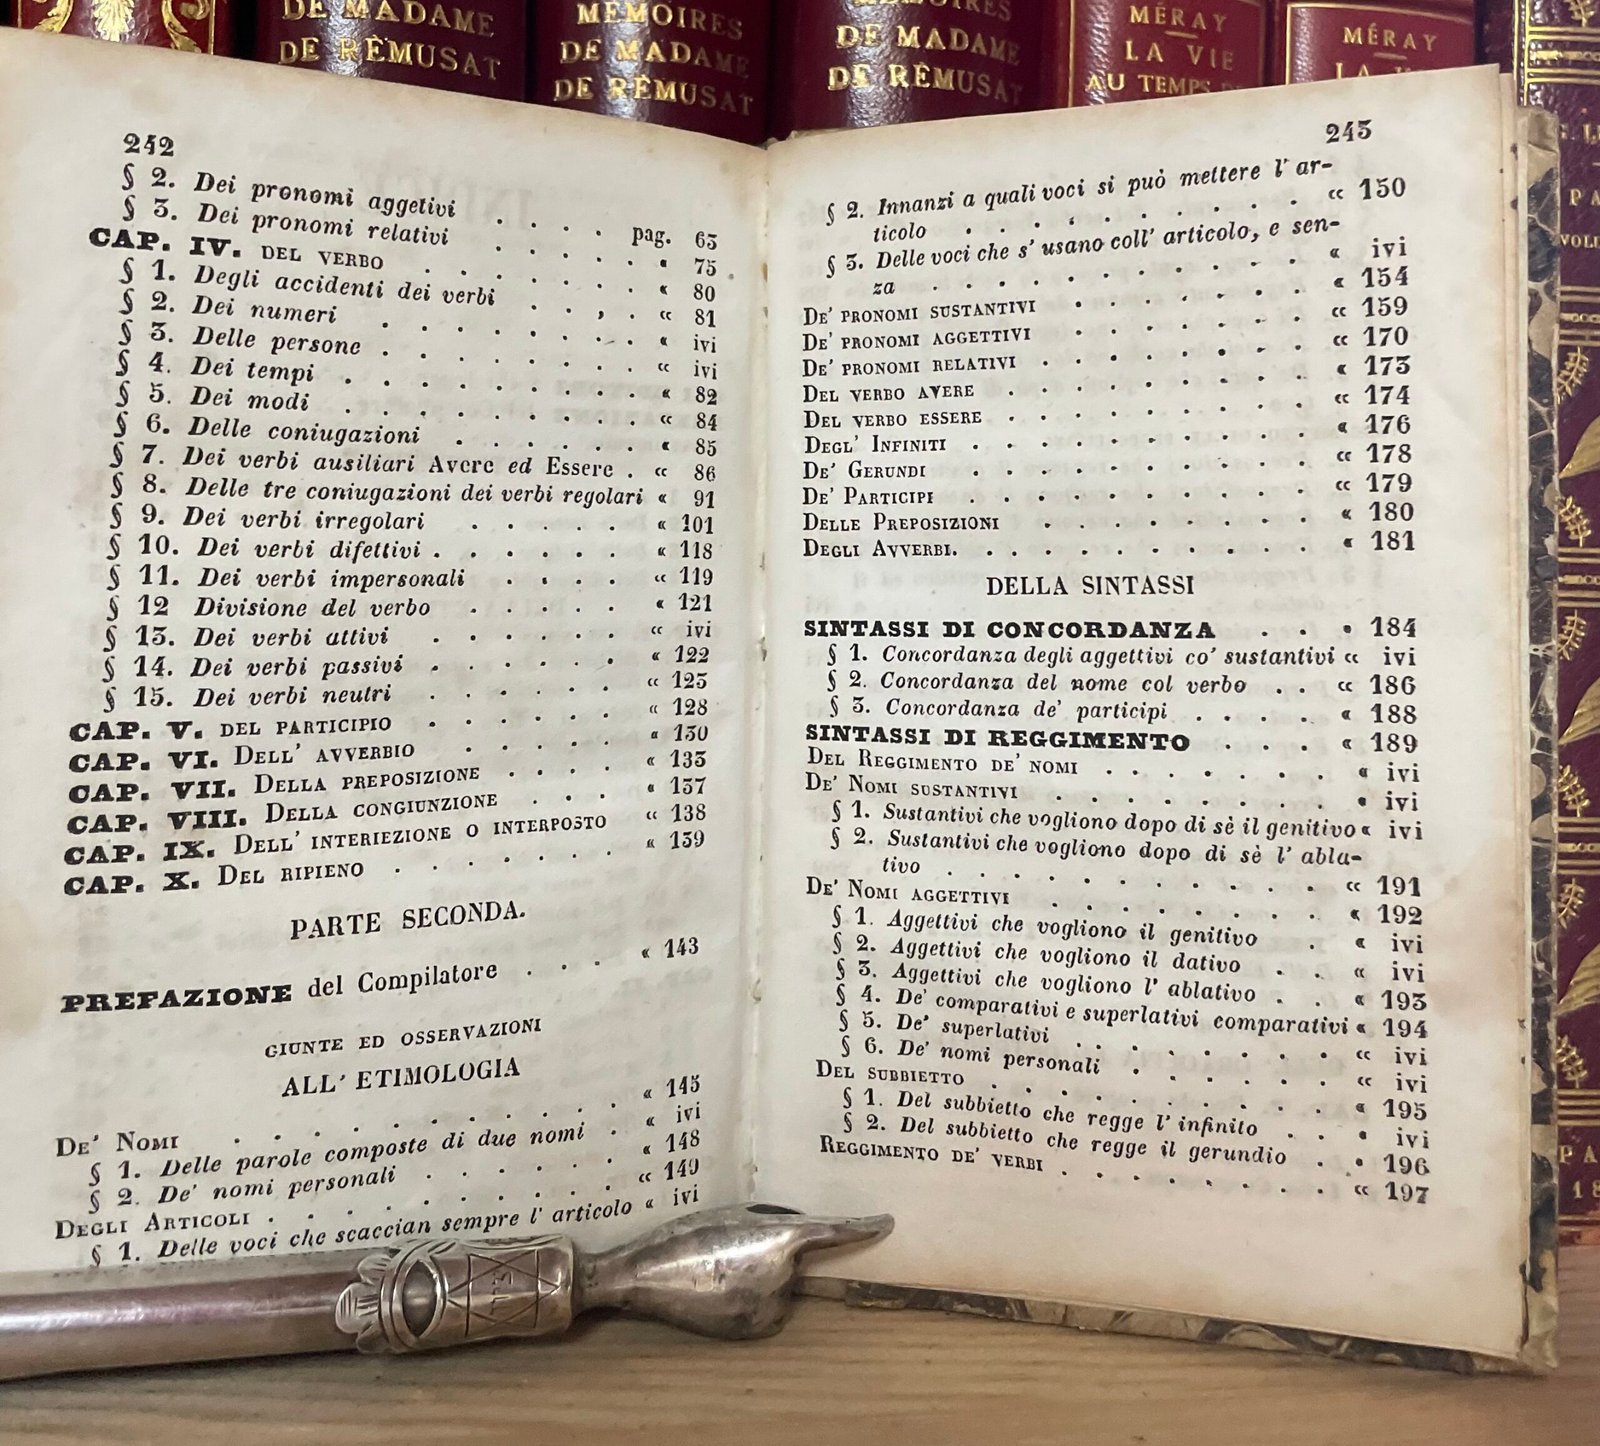 DE MADAME
DE RÉMUSAT
MÉMOIRES
DE MADAME
DE RÉMUSAT
MÉMOIRES
DE MADAME
DE RÉMUSAT
MÉRAY
LA VIE
AU TEMPS
MÉRAY
242
§ 2. Dei pronomi aggetivi . . . . pag. 63
§ 3. Dei pronomi relativi . . . . . « 75
CAP. IV. DEL VERBO . . . . . . « 80
§ 1. Degli accidenti dei verbi . . . . « 81
§ 2. Dei numeri . . . . . . . « ivi
§ 3. Delle persone . . . . . . . « ivi
§ 4. Dei tempi . . . . . . . . « 82
§ 5. Dei modi . . . . . . . . « 84
§ 6. Delle coniugazioni . . . . . « 85
§ 7. Dei verbi ausiliari Avere ed Essere . « 86
§ 8. Delle tre coniugazioni dei verbi regolari « 91
§ 9. Dei verbi irregolari . . . . . « 101
§ 10. Dei verbi difettivi . . . . . . « 118
§ 11. Dei verbi impersonali . . . . « 119
§ 12 Divisione del verbo . . . . . « 121
§ 13. Dei verbi attivi . . . . . . « ivi
§ 14. Dei verbi passivi . . . . . . « 122
§ 15. Dei verbi neutri . . . . . . « 125
CAP. V. DEL PARTICIPIO . . . . . « 128
CAP. VI. DELL' AVVERBIO . . . . . « 130
CAP. VII. DELLA PREPOSIZIONE . . . . « 133
CAP. VIII. DELLA CONGIUNZIONE . . . « 137
CAP. IX. DELL' INTERIEZIONE O INTERPOSTO « 138
CAP. X. DEL RIPIENO . . . . . . « 139
PARTE SECONDA.
PREFAZIONE del Compilatore . . . « 143
GIUNTE ED OSSERVAZIONI
ALL' ETIMOLOGIA
DE' NOMI . . . . . . . . . « 145
§ 1. Delle parole composte di due nomi . « ivi
§ 2. De' nomi personali . . . . . « 148
DEGLI ARTICOLI . . . . . . . . « 149
§ 1. Delle voci che scaccian sempre l' articolo « ivi
243
§ 2. Innanzi a quali voci si può mettere l' ar-
ticolo . . . . . . . . « 150
§ 3. Delle voci che s' usano coll' articolo, e sen-
za . . . . . . . . . « ivi
DE' PRONOMI SUSTANTIVI . . . . . « 154
DE' PRONOMI AGGETTIVI . . . . . « 159
DE' PRONOMI RELATIVI . . . . . . « 170
DEL VERBO AVERE . . . . . . . « 173
DEL VERBO ESSERE . . . . . . . « 174
DEGL' INFINITI . . . . . . . . « 176
DE' GERUNDI . . . . . . . . « 178
DE' PARTICIPI . . . . . . . . « 179
DELLE PREPOSIZIONI . . . . . . « 180
DEGLI AVVERBI. . . . . . . . . « 181
DELLA SINTASSI
SINTASSI DI CONCORDANZA . . . 184
§ 1. Concordanza degli aggettivi co' sustantivi « ivi
§ 2. Concordanza del nome col verbo . . « 186
§ 3. Concordanza de' participi . . . . « 188
SINTASSI DI REGGIMENTO . . . « 189
DEL REGGIMENTO DE' NOMI . . . . . . « ivi
DE' NOMI SUSTANTIVI . . . . . . . ivi
§ 1. Sustantivi che vogliono dopo di sè il genitivo « ivi
§ 2. Sustantivi che vogliono dopo di sè l' abla-
tivo . . . . . . . . . « 191
DE' NOMI AGGETTIVI . . . . . . . « 192
§ 1. Aggettivi che vogliono il genitivo . « ivi
§ 2. Aggettivi che vogliono il dativo . . « ivi
§ 3. Aggettivi che vogliono l' ablativo . . « 193
§ 4. De' comparativi e superlativi comparativi « 194
§ 5. De' superlativi . . . . . . . « ivi
§ 6. De' nomi personali . . . . . « ivi
DEL SUBBIETTO . . . . . . . . « 195
§ 1. Del subbietto che regge l' infinito . . . ivi
§ 2. Del subbietto che regge il gerundio . . 196
REGGIMENTO DE' VERBI . . . . . . . « 197